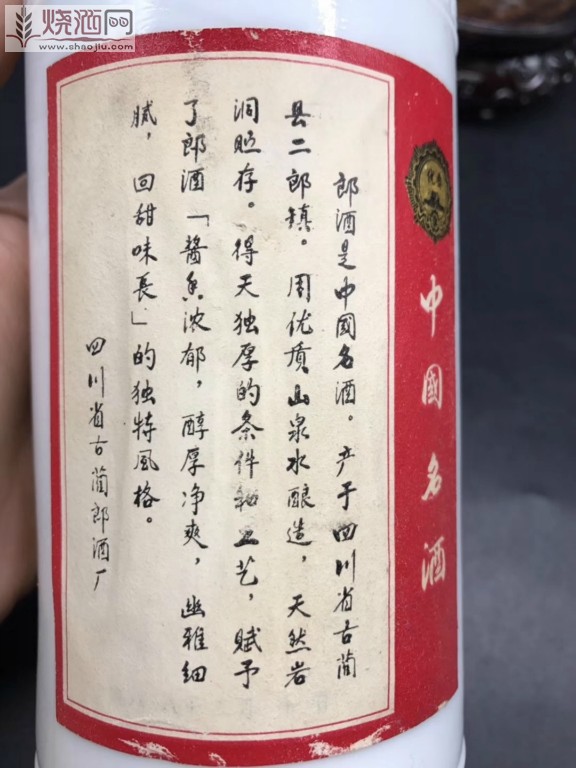 烧酒网
www.shaojiu.com
中國名酒
郎酒是中國名酒。产于四川省古蔺
县二郎镇。用优质山泉水酿造，天然岩
洞贮存。得天独厚的条件和工艺，赋予
了郎酒「醬香浓郁，醇厚净爽，幽雅细
腻，回甜味長」的独特风格。
四川省古蔺郎酒厂